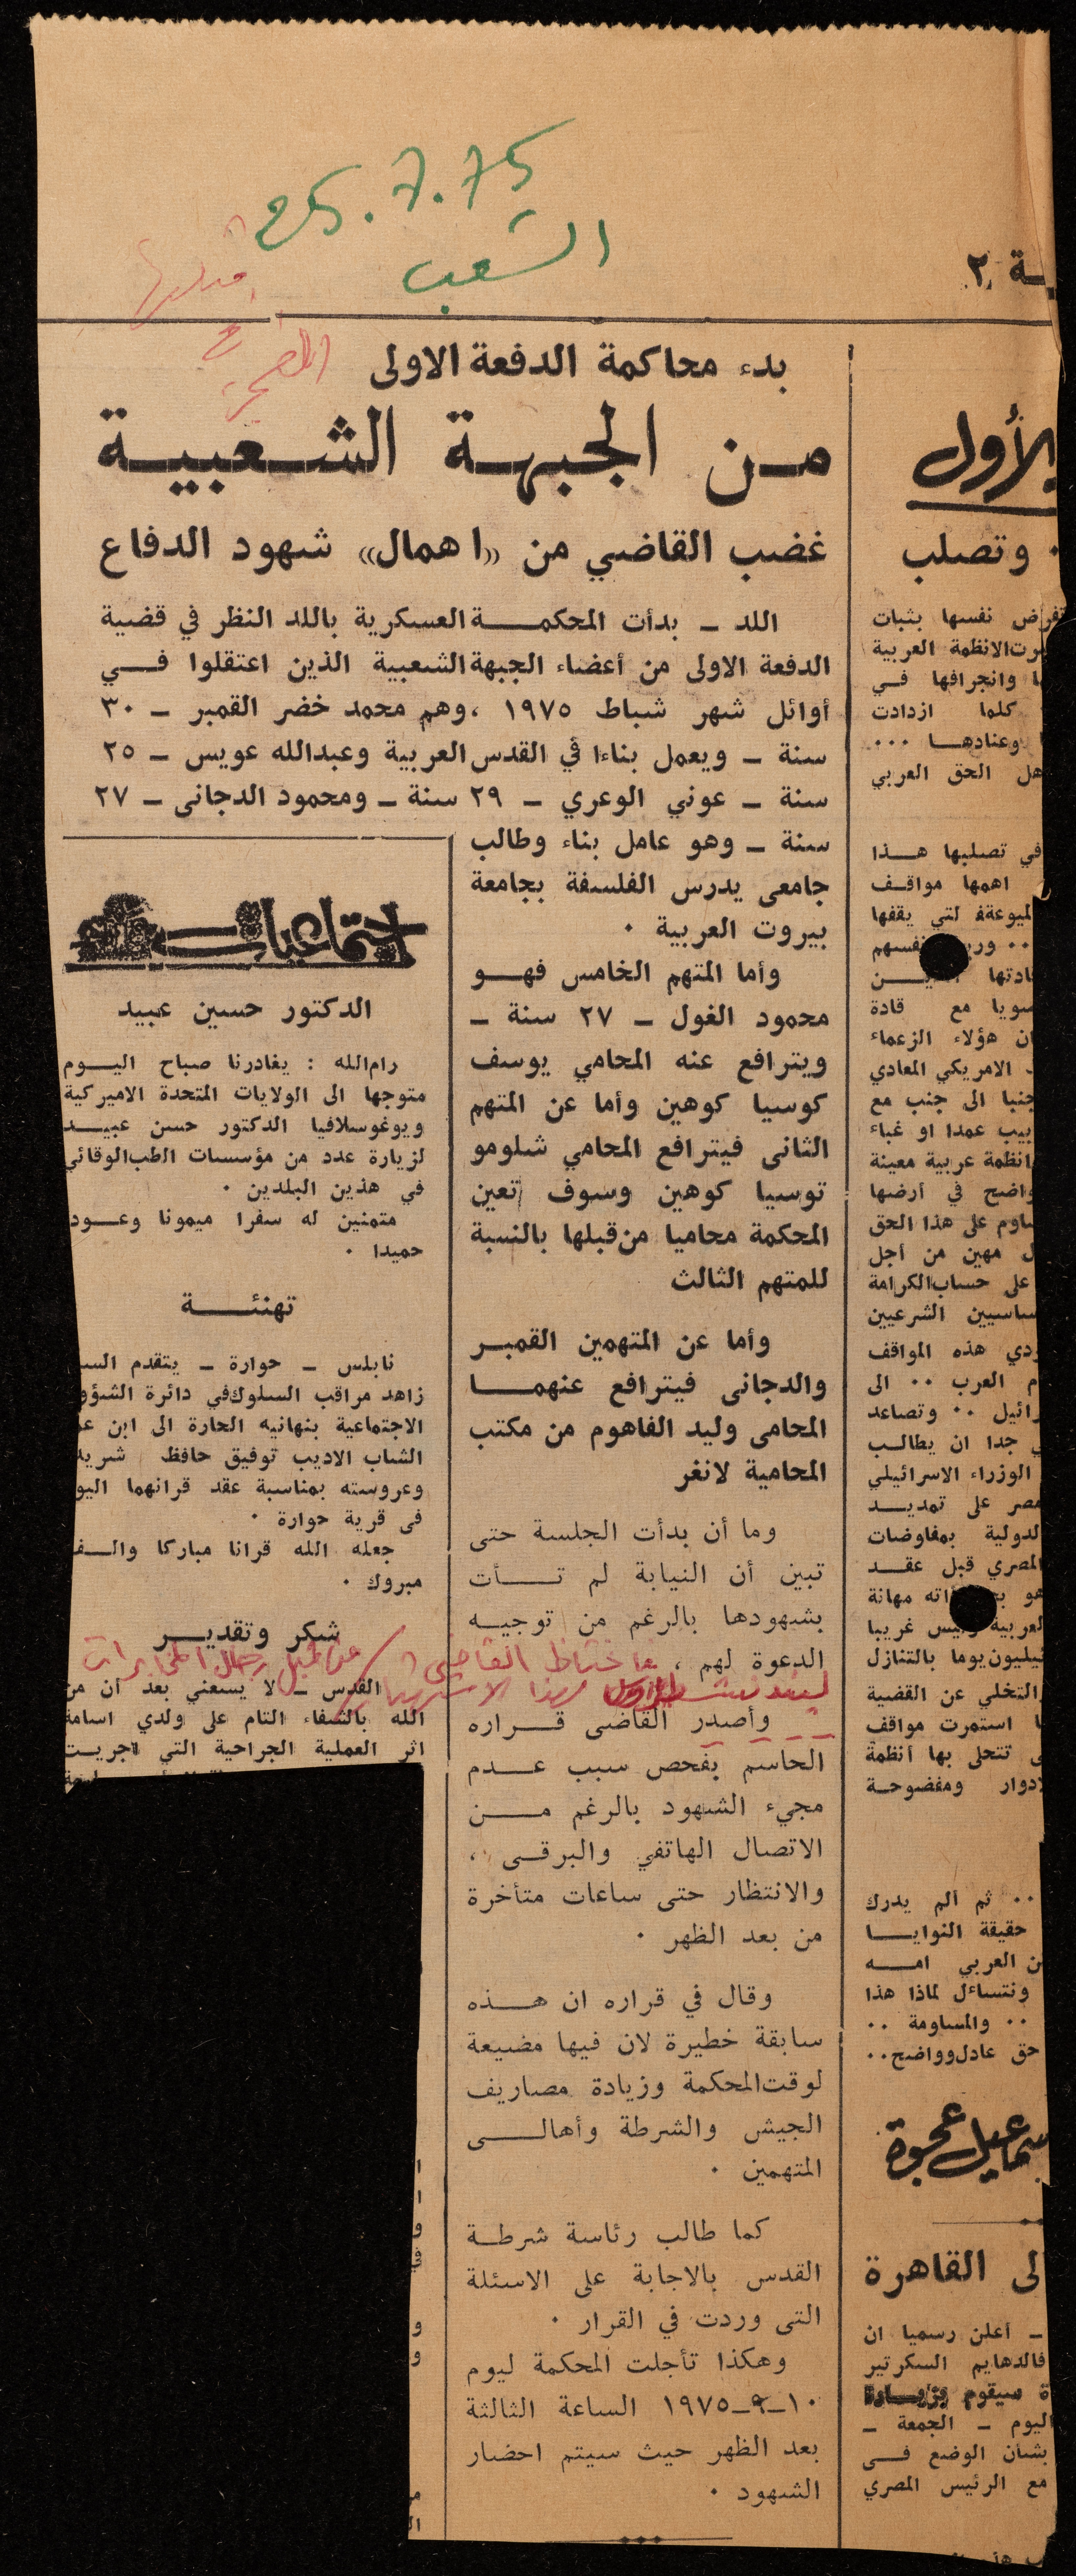 25.7.75
الشعب
ـة ٢
بدء محاكمة الدفعة الاولى
من الجبهة الشعبية
غضب القاضي من «اهمال» شهود الدفاع
اللد ــ بدأت المحكمة العسكرية باللد النظر في قضية
الدفعة الاولى من أعضاء الجبهة الشعبية الذين اعتقلوا في
أوائل شهر شباط ١٩٧٥ ، وهم محمد خضر القمبر ــ ٣٠
سنة ــ ويعمل بناءا في القدس العربية وعبدالله عويس ــ ٢٥
سنة ــ عوني الوعري ــ ٢٩ سنة ــ ومحمود الدجانى ــ ٢٧
سنة ــ وهو عامل بناء وطالب
جامعى يدرس الفلسفة بجامعة
بيروت العربية .
وأما المتهم الخامس فهو
محمود الغول ــ ٢٧ سنة ــ
ويترافع عنه المحامي يوسف
كوسيا كوهين وأما عن المتهم
الثانى فيترافع المحامي شلومو
توسيا كوهين وسوف تعين
المحكمة محاميا من قبلها بالنسبة
للمتهم الثالث
وأما عن المتهمين القمبر
والدجانى فيترافع عنهما
المحامى وليد الفاهوم من مكتب
المحامية لانغر
وما أن بدأت الجلسة حتى
تبين أن النيابة لم تأت
بشهودها بالرغم من توجيه
الدعوة لهم ،
وأصدر القاضى قراره
الحاسم بفحص سبب عدم
مجيء الشهود بالرغم من
الاتصال الهاتفي والبرقى ،
والانتظار حتى ساعات متأخرة
من بعد الظهر .
وقال في قراره ان هذه
سابقة خطيرة لان فيها مضيعة
لوقت المحكمة وزيادة مصاريف
الجيش والشرطة وأهالى
المتهمين .
كما طالب رئاسة شرطة
القدس بالاجابة على الاسئلة
التى وردت في القرار .
وهكذا تأجلت المحكمة ليوم
١٠ــ٩ــ١٩٧٥ الساعة الثالثة
بعد الظهر حيث سيتم احضار
الشهود .
اجتماعيات
الدكتور حسين عبيد
رام الله : يغادرنا صباح اليوم
متوجها الى الولايات المتحدة الاميركية
ويوغوسلافيا الدكتور حسن عبيد
لزيارة عدد من مؤسسات الطب الوقائي
في هذين البلدين .
متمنين له سفرا ميمونا وعود
حميدا .
تهنئة
نابلس ــ حوارة ــ يتقدم الس
زاهد مراقب السلوك في دائرة الشؤو
الاجتماعية بتهانيه الحارة الى ابن ع
الشاب الاديب توفيق حافظ شريد
وعروسته بمناسبة عقد قرانهما اليو
فى قرية حوارة .
جعله الله قرانا مباركا والف
مبروك .
شكر وتقدير
القدس ــ لا يسعني بعد أن من
الله بالشفاء التام على ولدي اسامة
اثر العملية الجراحية التي اجريت
الأول
وتصلب
تفرض نفسها بثبات
رت الانظمة العربية
ا وانجرافها في
كلما ازدادت
وعنادها ...
هل الحق العربي
في تصلبها هذا
اهمها مواقف
لتي يقفها
نفسهم
سويا مع قادة
ان هؤلاء الزعماء
الامريكي المعادي
جنبا الى جنب مع
بيب عمدا او غباء
انظمة عربية معينة
واضح في أرضها
ساوم على هذا الحق
ل مهين من أجل
على حساب الكرامة
ساسيين الشرعيين
ردي هذه المواقف
م العرب .. الى
رائيل .. وتصاعد
ي جدا ان يطالب
الوزراء الاسرائيلي
مصر على تمديد
لدولية بمفاوضات
المصري قبل عقد
مهانة
لعربية وليس غريبا
يليون يوما بالتنازل
والتخلي عن القضية
ا استمرت مواقف
ى تتحلى بها أنظمة
لادوار ومفضوحة
.. ثم الم يدرك
حقيقة النوايا
ن العربي امه
ونتساءل لماذا هذا
.. والمساومة ..
حق عادل وواضح ..
سماعيل عجوة
لى القاهرة
ــ أعلن رسميا ان
فالدهايم السكرتير
ة سيقوم بزيارة
اليوم ــ الجمعة ــ
بشأن الوضع فى
مع الرئيس المصري